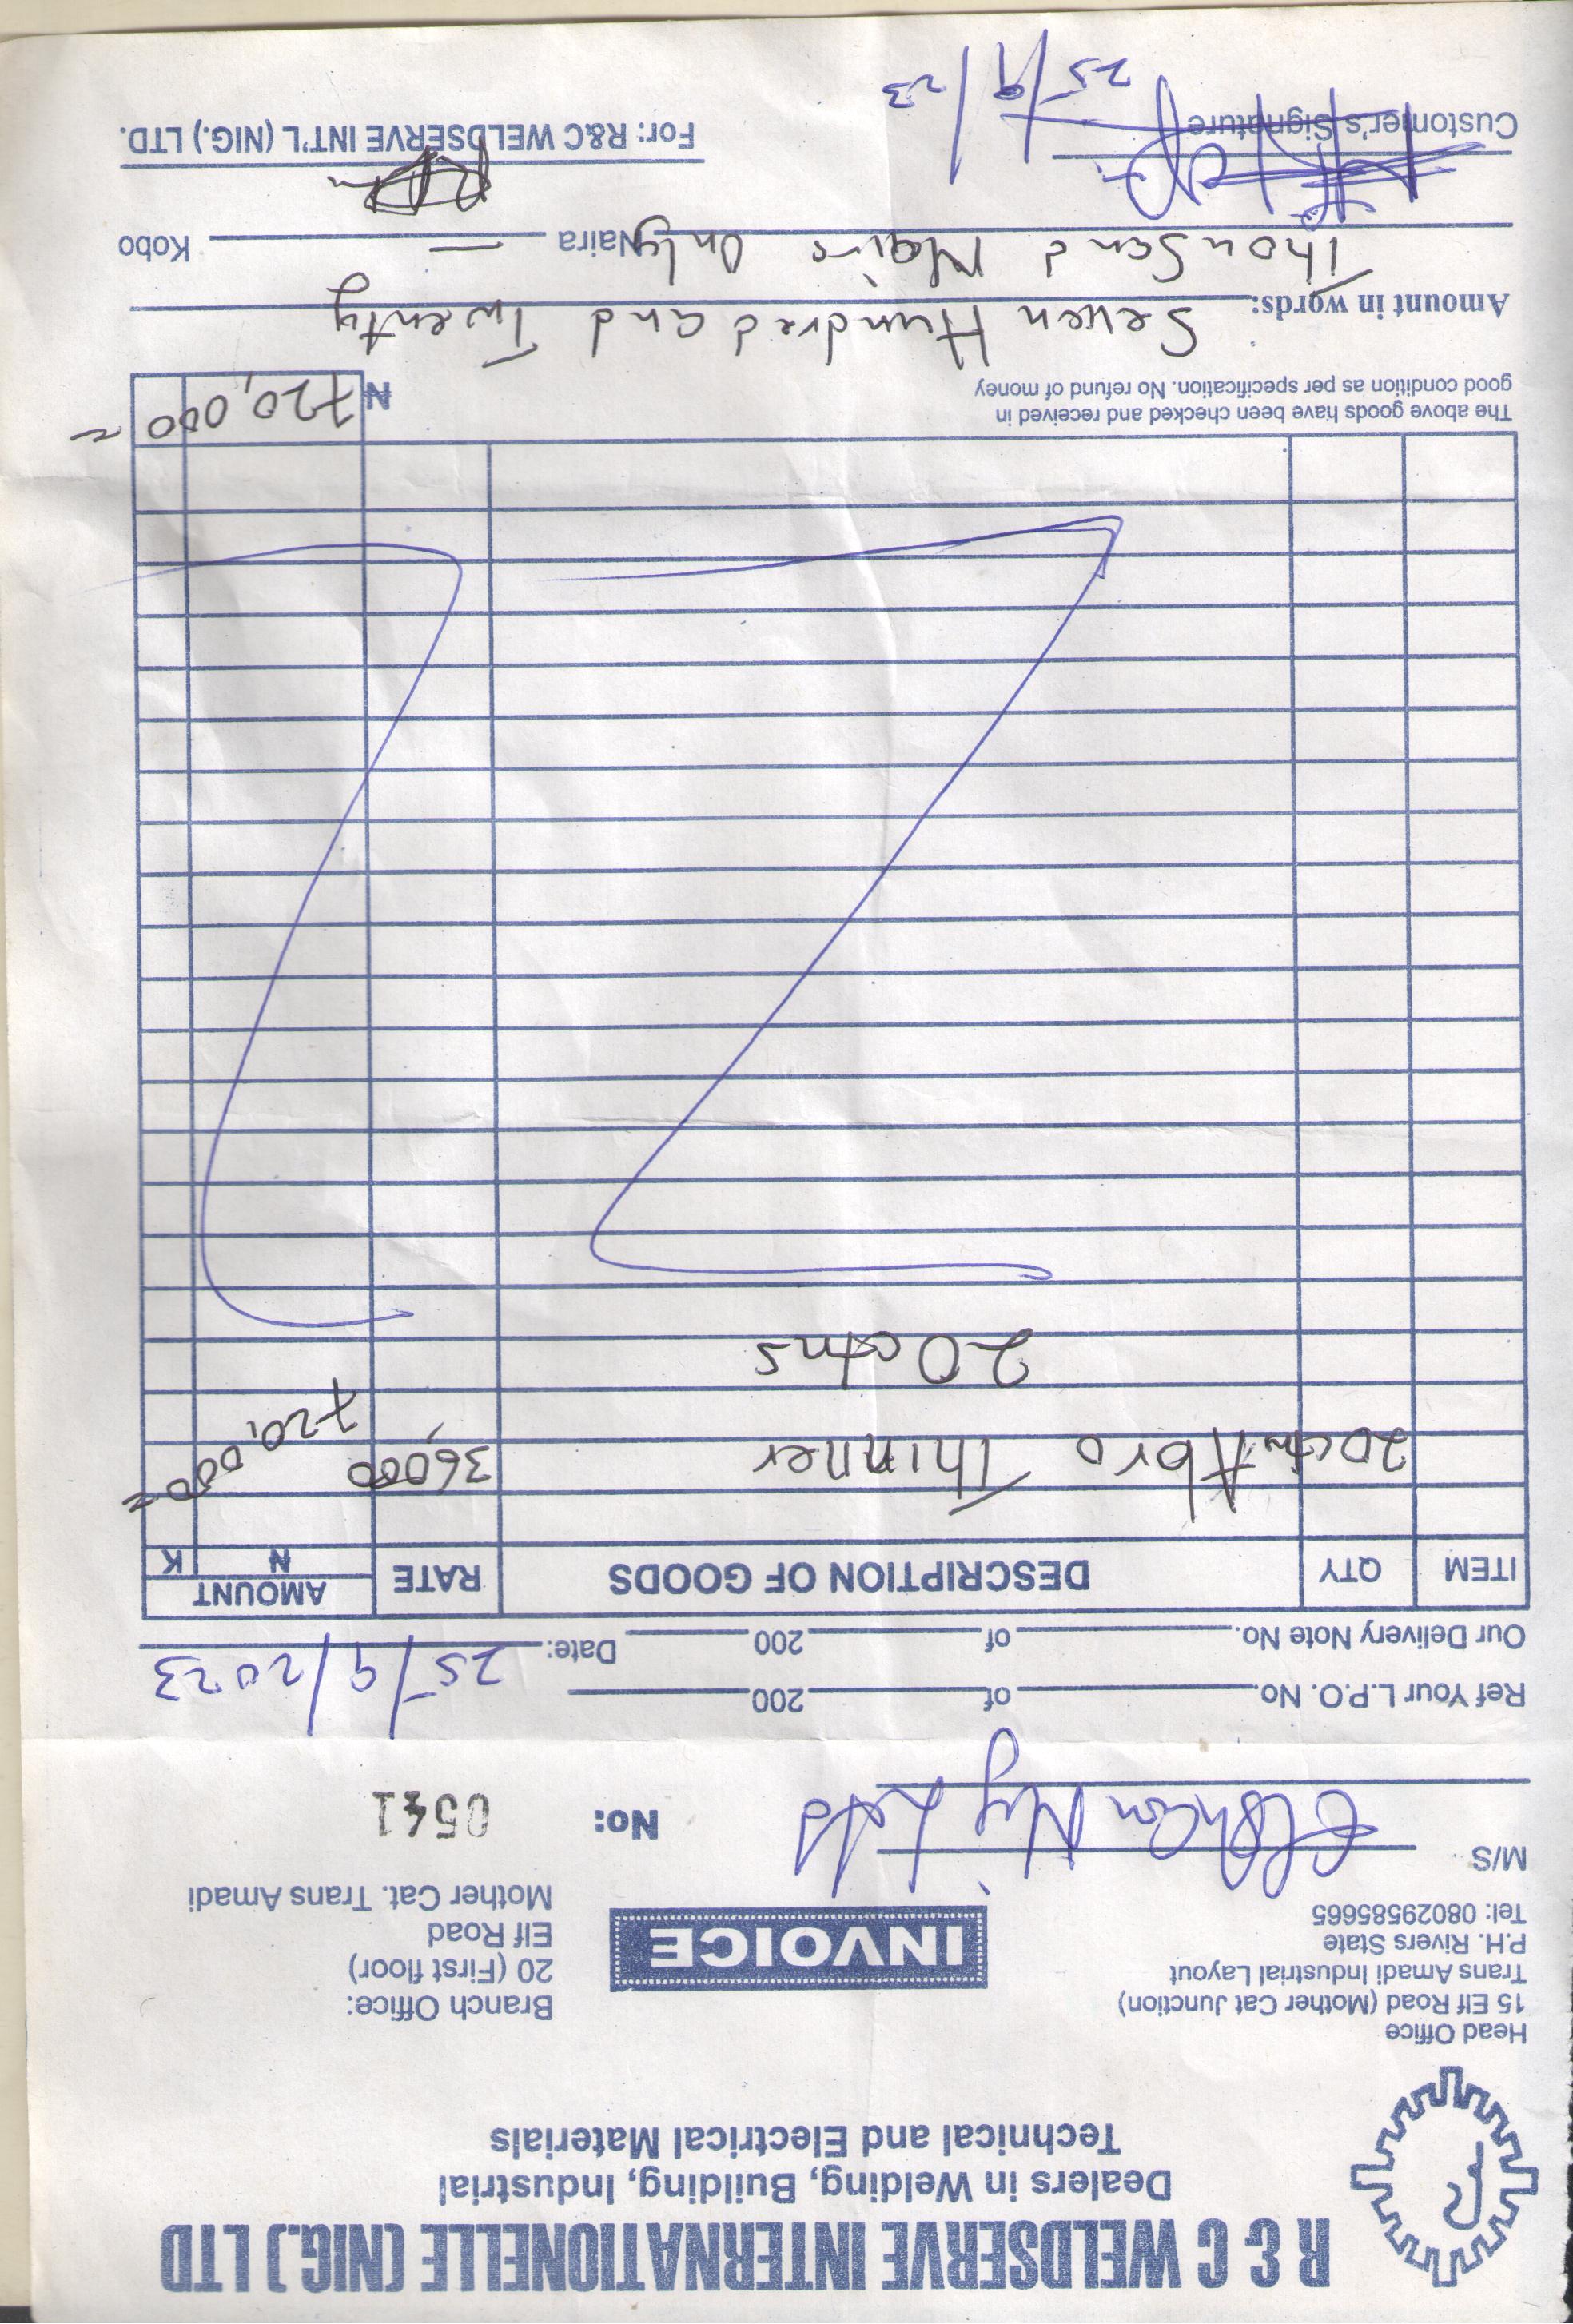 R & C WELDSERVE INTERNATIONELLE (NIG.) LTD
Dealers in Welding, Building, Industrial
Technical and Electrical Materials
Head Office
15 Elf Road (Mother Cat Junction)
Trans Amadi Industrial Layout
P.H. Rivers State
Tel: 08029585665
INVOICE
Branch Office:
20 (First floor)
Elf Road
Mother Cat. Trans Amadi
M/S
Nig Ltd
No: 0541
Ref Your L.P.O. No. of 200
Our Delivery Note No. of 200 Date: 25/9/2023
ITEM QTY DESCRIPTION OF GOODS RATE AMOUNT
N K
20ctn Abro Thinner 36,000 720,000=
20ctns
The above goods have been checked and received in
good condition as per specification. No refund of money
N 720,000=
Amount in words: Seven Hundred and Twenty
Thousand Naira Only Naira — Kobo
Customer's Signature
25/9/23
For: R&C WELDSERVE INT'L (NIG.) LTD.